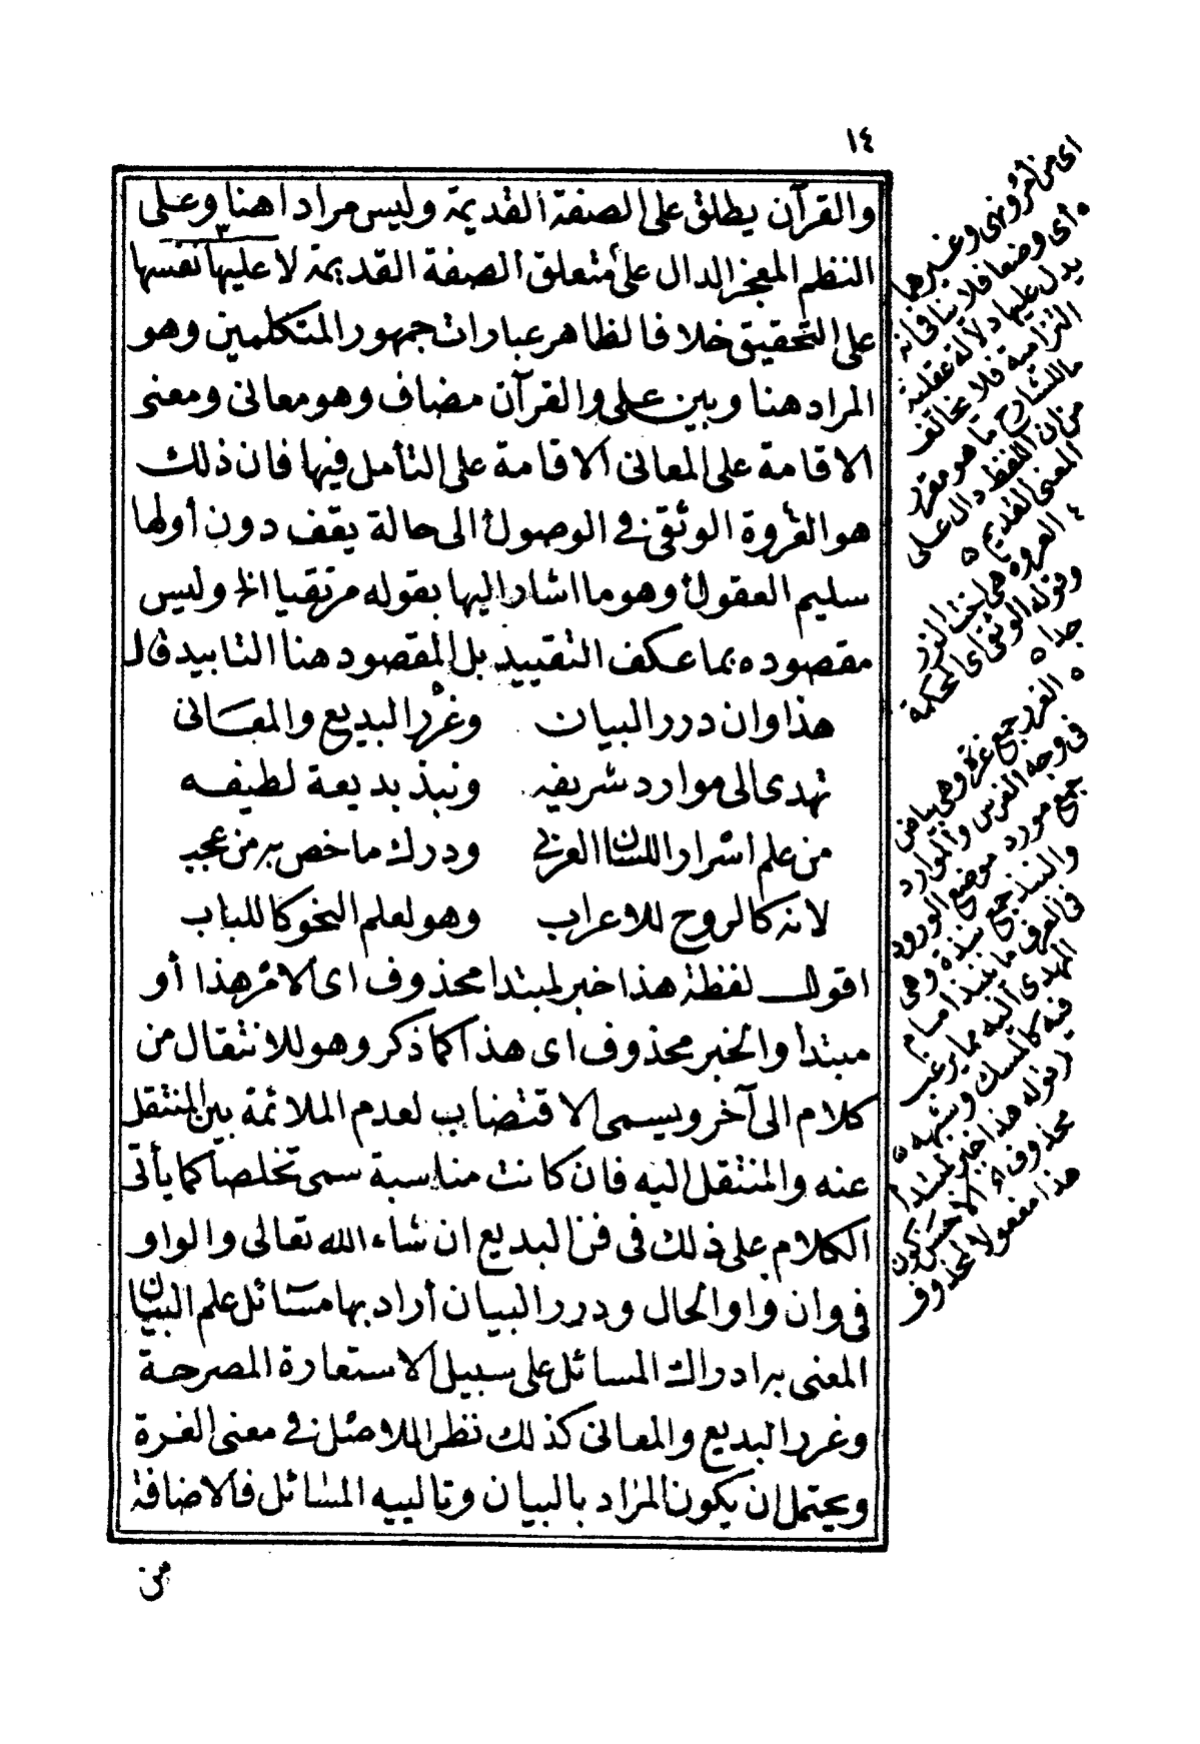 ١٤
والقرآن يطلق على الصفة القديمة وليس مرادا هنا وعلى
النظم المعجز الدال على متعلق الصفة القديمة لا عليها نفسها
على التحقيق خلافا لظاهر عبارات جمهور المتكلمين وهو
المراد هنا وبين على والقرآن مضاف وهو معانى ومعنى
الاقامة على المعانى الاقامة على التأمل فيها فان ذلك
هو العروة الوثقى فى الوصول الى حالة يقف دون أولها
سليم العقول وهو ما اشار اليها بقوله مرتقيا الخ وليس
مقصوده بما عكف التقييد بل المقصود هنا التابيد قال
هذا وان درر البيان وغرر البديع والمعانى
تهدى الى موارد شريفه ونبذ بديعة لطيفه
من علم اسرار اللسان العربى ودرك ما خص به من عجب
لانه كالروح للاعراب وهو لعلم النحو كاللباب
اقول لفظة هذا خبر لمبتدا محذوف اى الامر هذا أو
مبتدأ والخبر محذوف اى هذا كما ذكر وهو للانتقال من
كلام الى آخر ويسمى الاقتضاب لعدم الملائمة بين المنتقل
عنه والمنتقل اليه فان كانت مناسبة سمى تخلصا كما يأتى
الكلام على ذلك فى فن البديع ان شاء الله تعالى والواو
فى وان واو الحال ودرر البيان أراد بها مسائل علم البيان
المعنى به ادراك المسائل على سبيل الاستعارة المصرحة
وغرر البديع والمعانى كذلك نظرا للاصل فى معنى الغرة
ويحتمل ان يكون المراد بالبيان وتالييه المسائل فالاضافة
من
اى من أمر ونهى وغيرها
اى وضعا فلا ينافى انه
يدل عليها دلالة عقلية
التزامية فلا يخالف
ما للشارح ما هو مقرر
من ان اللفظ دال على
المعنى القديم ٥
٤ العروة هى اخت الزر
وقوله الوثقى اى المحكمة
جدا ٥
٥ الغرر جمع غرة وهى بياض
فى وجه الفرس والموارد
جمع مورد موضع الورود
والنبذ جمع نبذة وهى
فى العرف ما ينبذ امام
المهدى اليه مما يرغب
فيه كالمسك وشبهه ٥
قوله هذا خبر لمبتدأ
محذوف الاحسن كون
هذا مفعولا لمحذوف